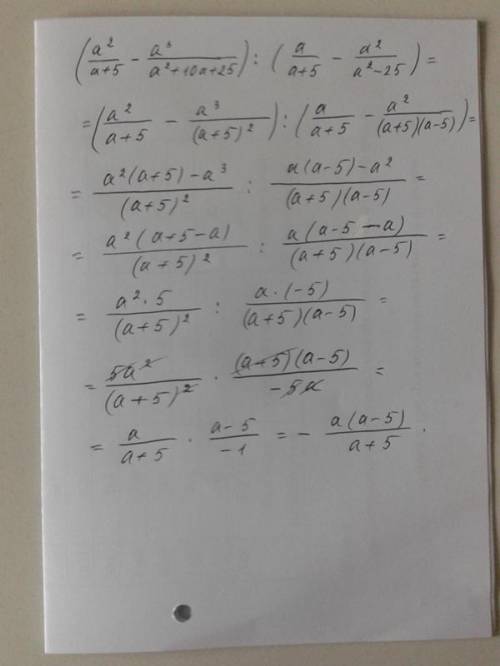 (a²/(a+5) - a³/(a²+10a+25)) : (a/(a+5) - a²/(a²-25)) =
= (a²/(a+5) - a³/(a+5)²) : (a/(a+5) - a²/((a+5)(a-5))) =
= (a²(a+5)-a³)/(a+5)² : (a(a-5)-a²)/((a+5)(a-5)) =
= a²(a+5-a)/(a+5)² : a(a-5-a)/((a+5)(a-5)) =
= a²·5/(a+5)² : a·(-5)/((a+5)(a-5)) =
= 5a²/(a+5)² · (a+5)(a-5)/(-5a) =
= a/(a+5) · (a-5)/(-1) = - a(a-5)/(a+5) .